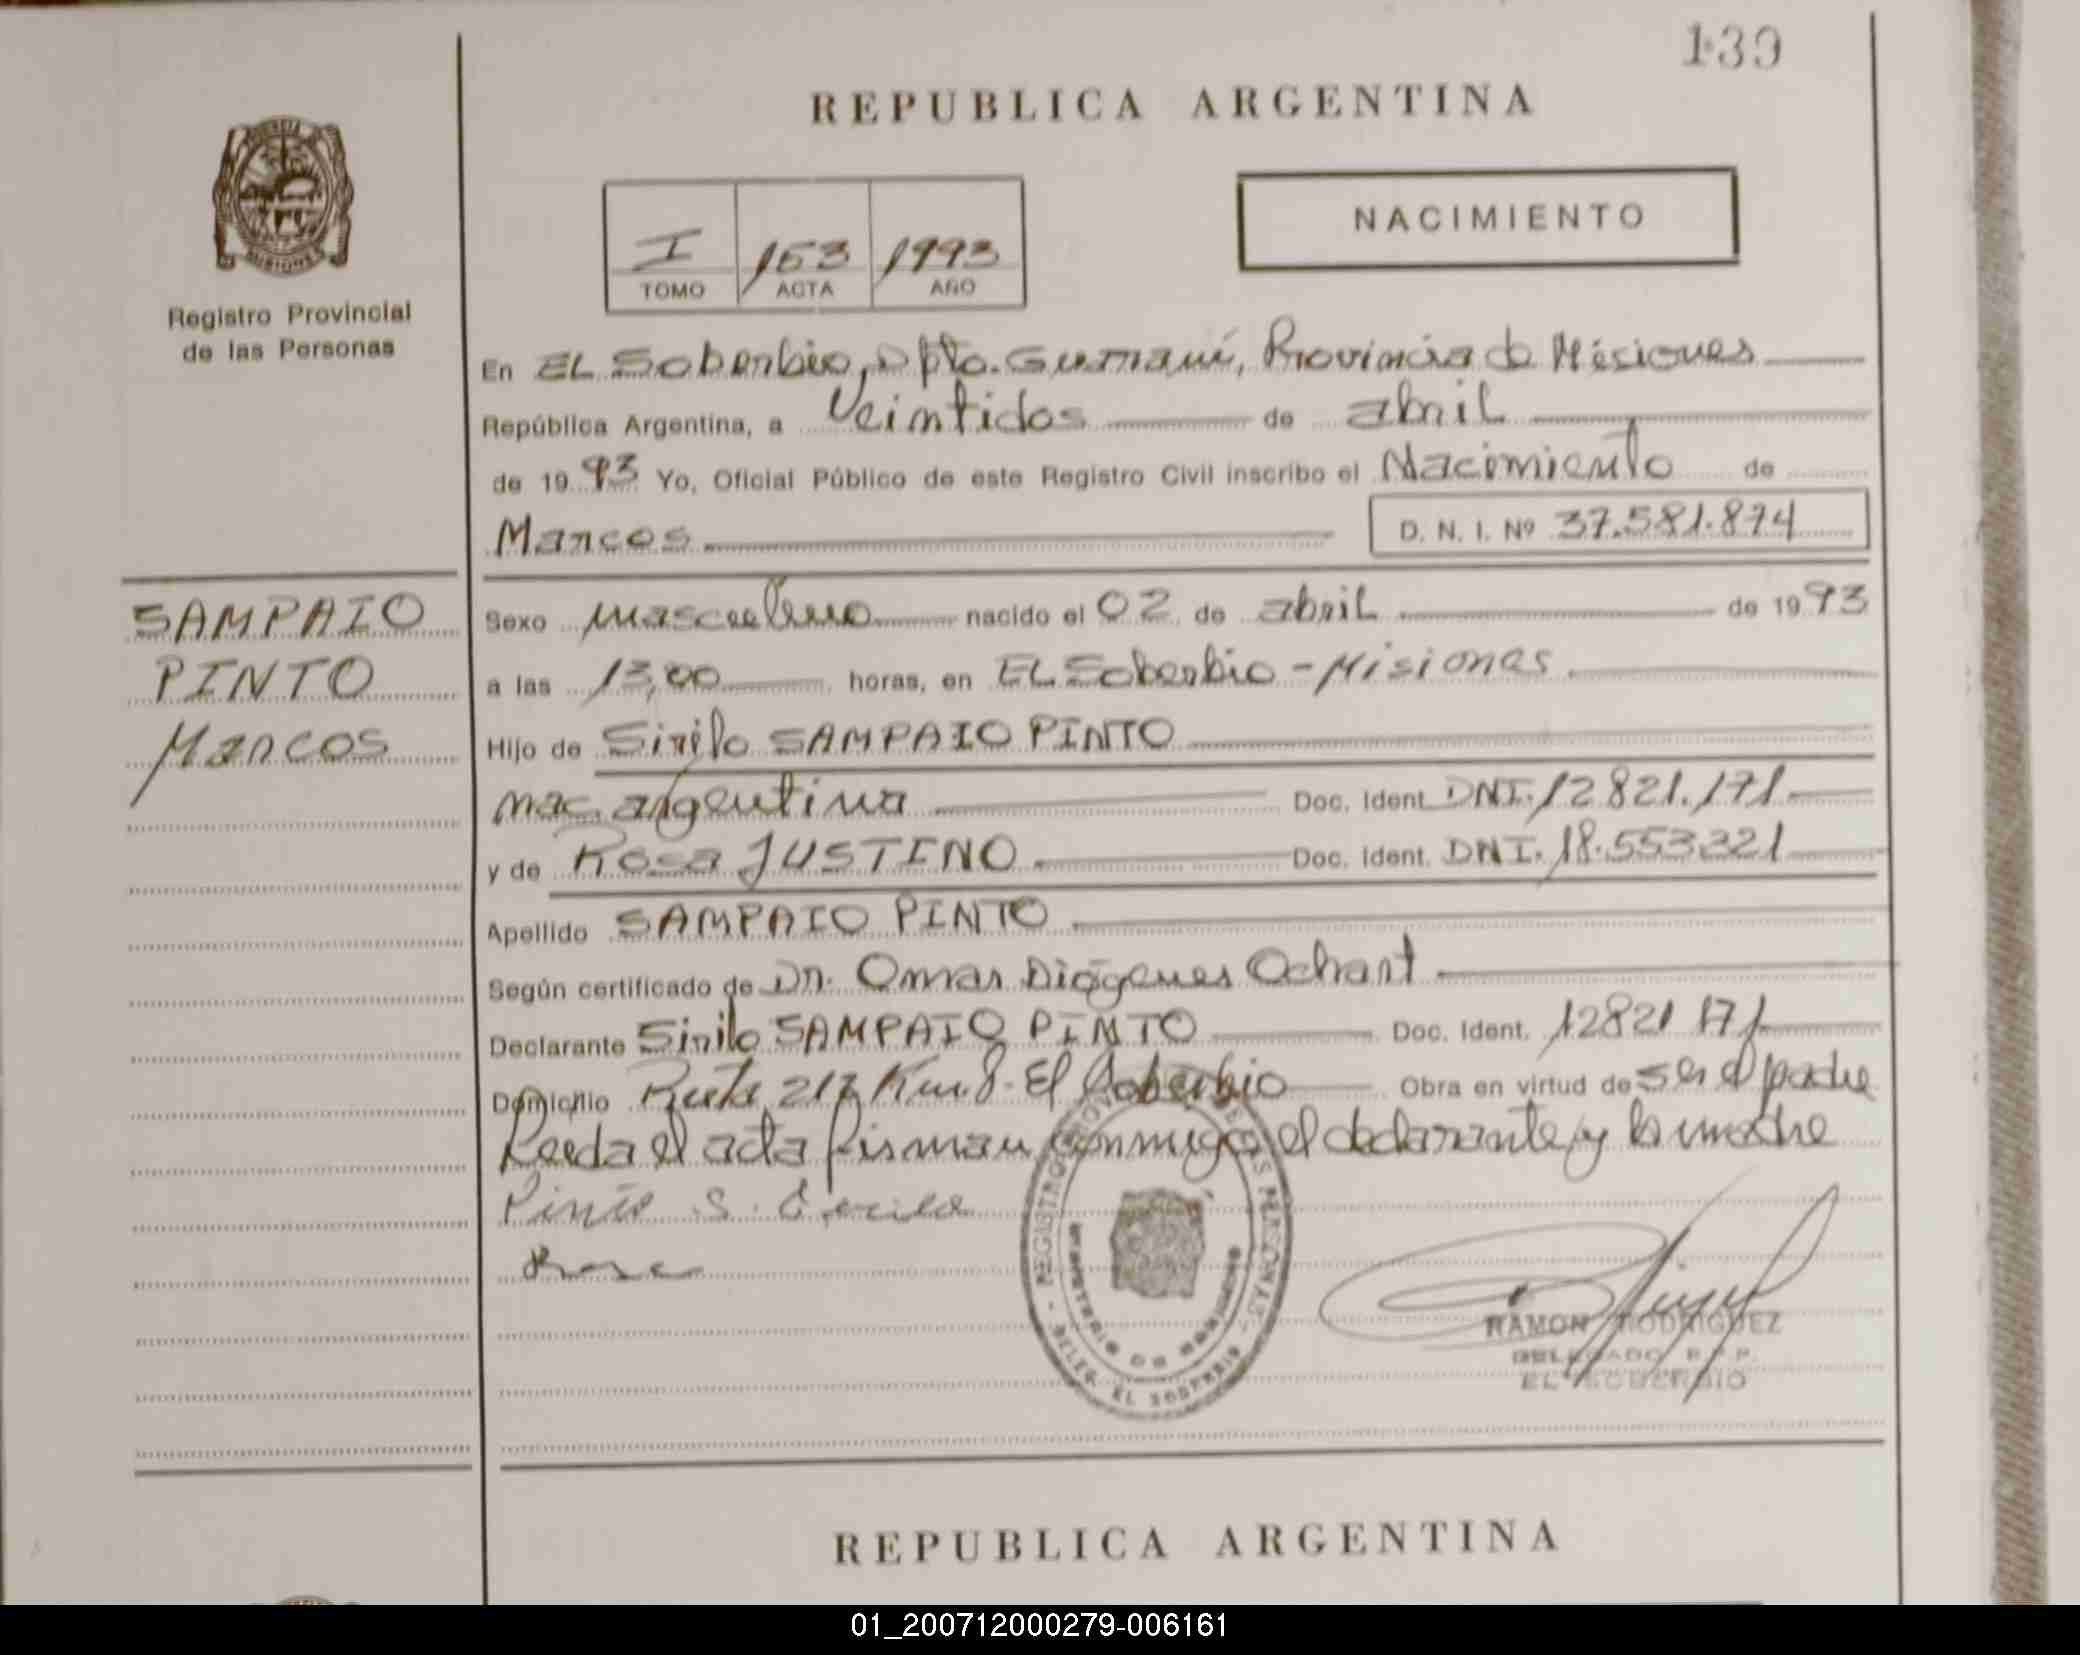 139
REPUBLICA ARGENTINA
MISIONES
Registro Provincial
de las Personas
I 153 1993
TOMO ACTA AÑO
NACIMIENTO
En EL Soberbio, Dpto. Guaraní, Provincia de Misiones
República Argentina, a Veintidos de abril
de 1993 Yo, Oficial Público de este Registro Civil inscribo el Nacimiento de
Marcos D. N. I. Nº 37.581.874
SAMPAIO
PINTO
Marcos
Sexo masculino nacido el 02 de abril de 1993
a las 13,00 horas, en EL Soberbio - Misiones
Hijo de Sirilo SAMPAIO PINTO
nac. argentina Doc. Ident. DNI. 12821.171
y de Rosa JUSTINO Doc. Ident. DNI. 18.553221
Apellido SAMPAIO PINTO
Según certificado de Dr. Omar Diógenes Ochart
Declarante Sirilo SAMPAIO PINTO Doc. Ident. 12821171
Domicilio Ruta 212 Km 8. El Soberbio Obra en virtud de ser el padre
Leeda el acta firman conmigo el declarante y la madre
Pinto S.
Rosa
REGISTRO PROV. DE LAS PERSONAS - DELEG. EL SOBERBIO -
MINISTERIO DE GOBIERNO
RAMON RODRIGUEZ
DELEGADO R.P.P.
EL SOBERBIO
REPUBLICA ARGENTINA
01_200712000279-006161